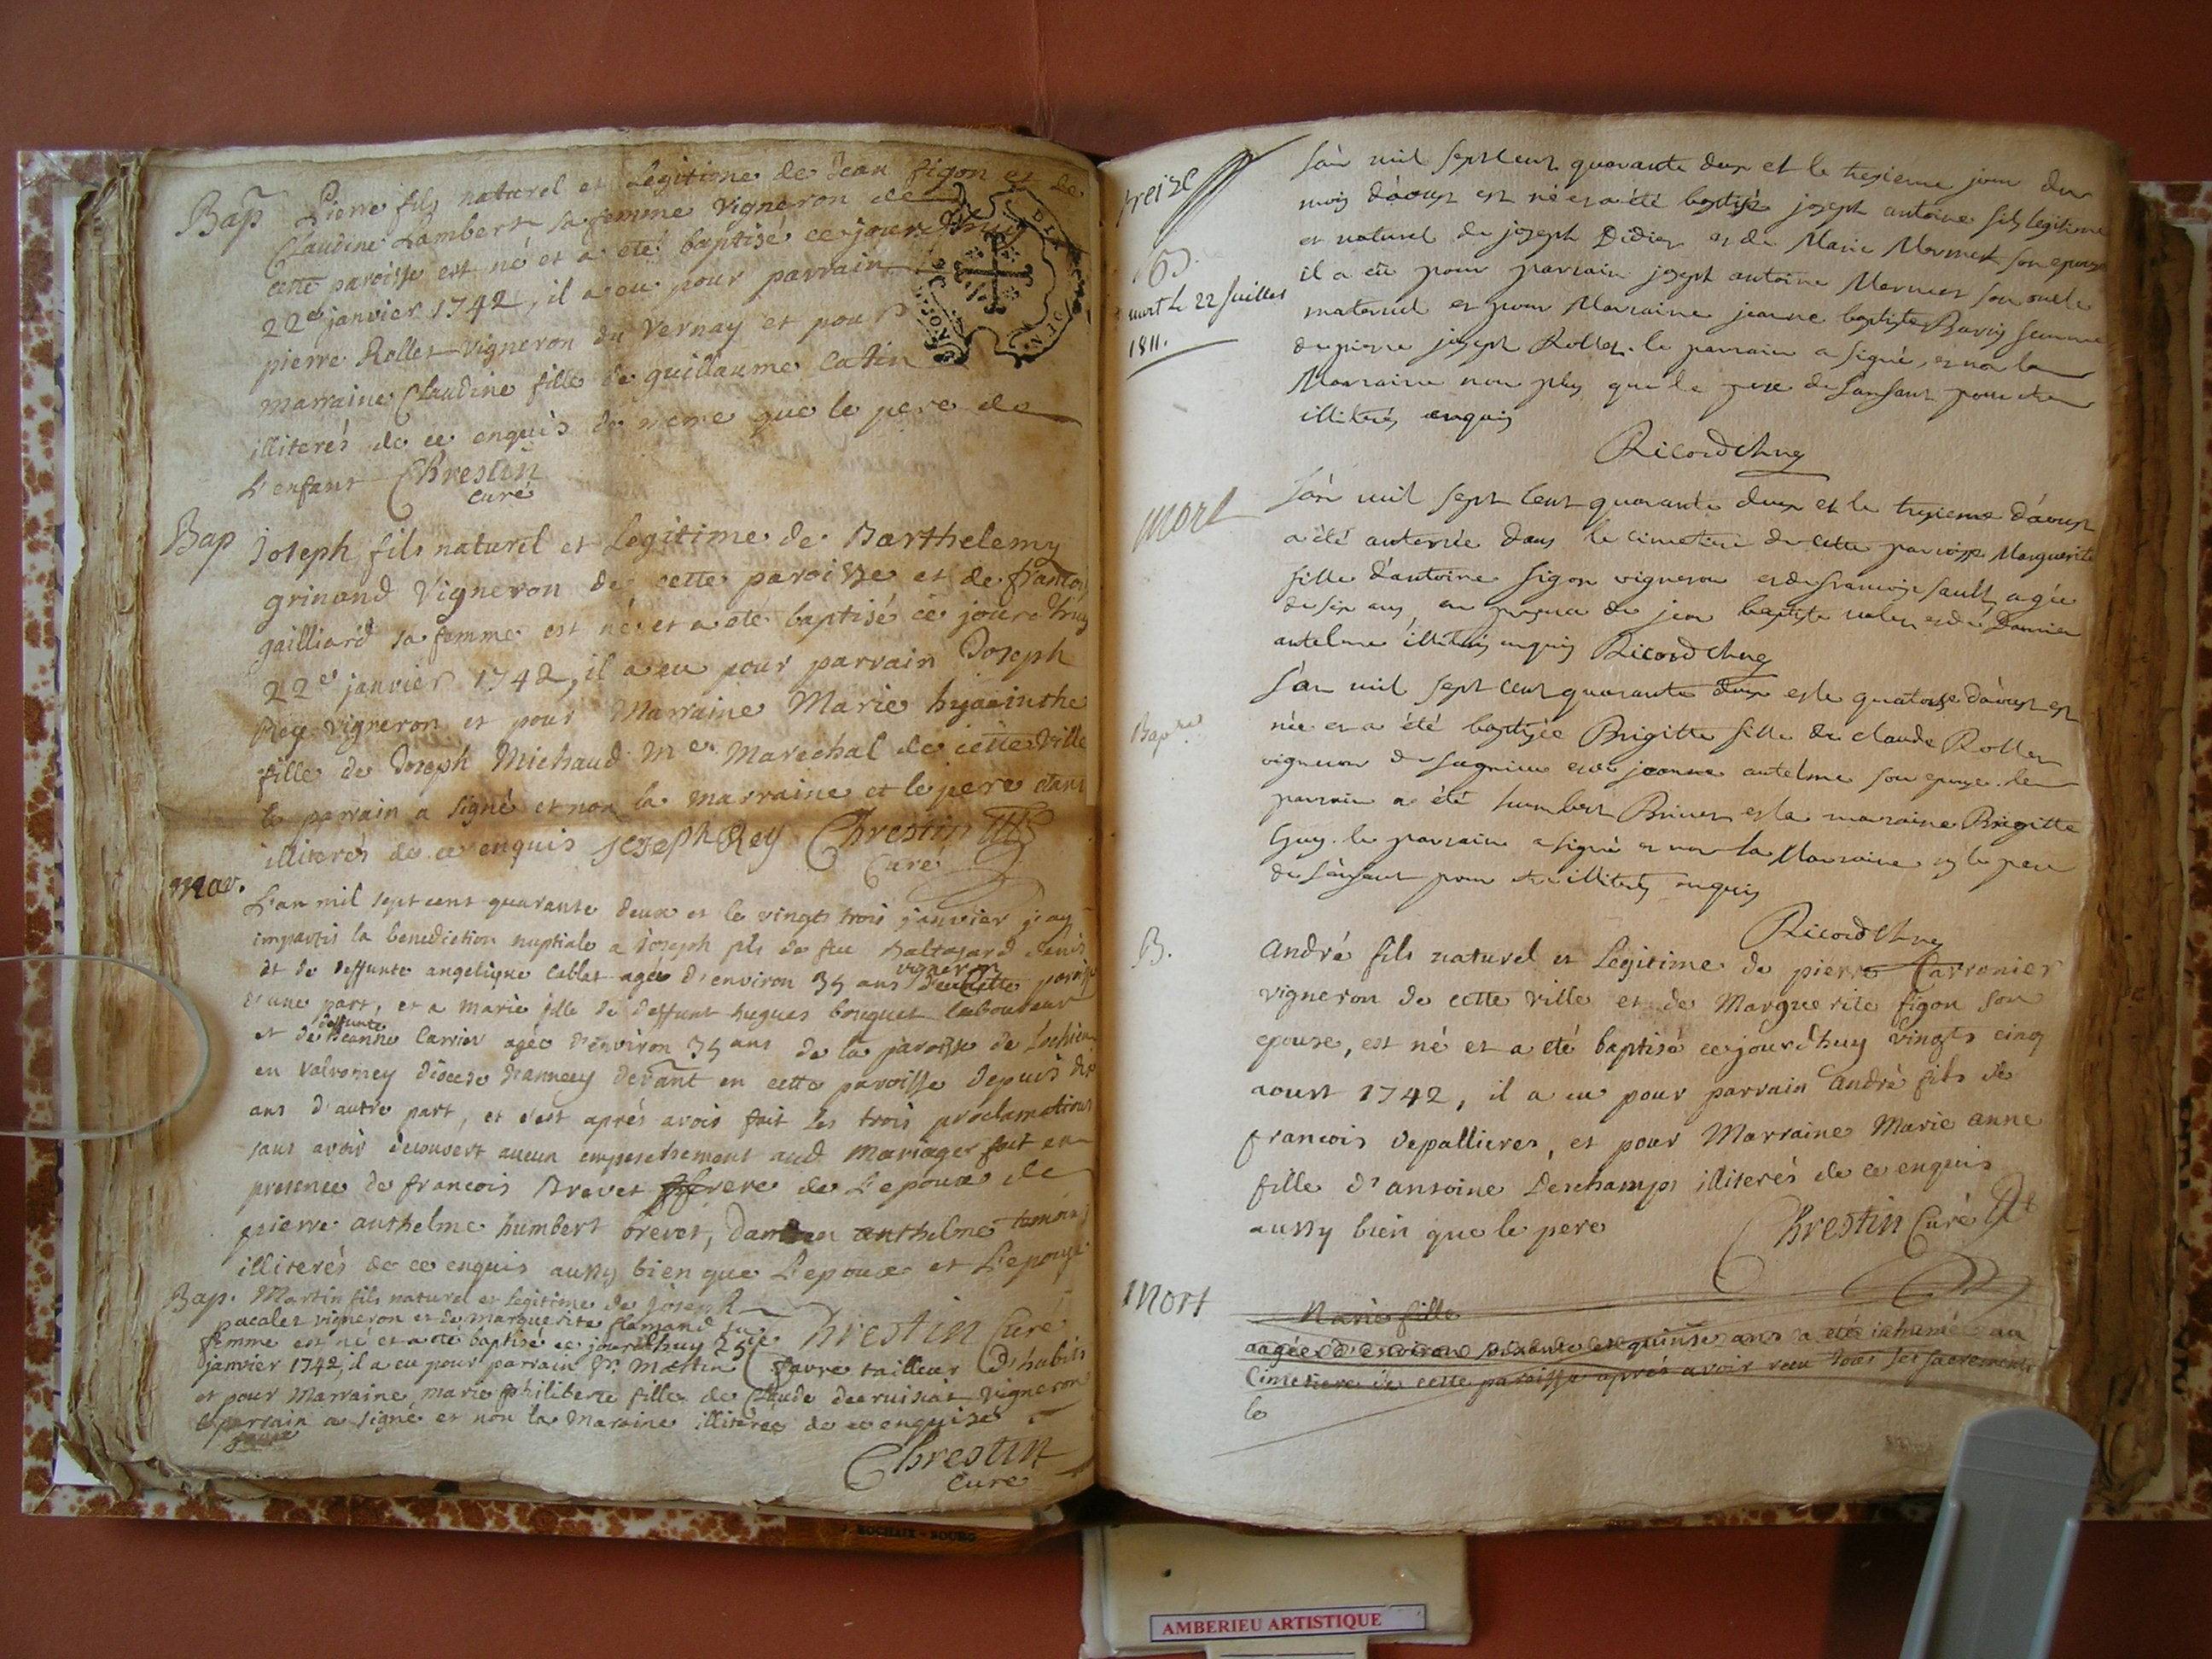 Bap
Pierre fils naturel et Legitime de Jean figon et de
Claudine Lambert sa femme vigneron de
cette paroisse est né et a eté baptisé ce jourdhuy
22e janvier 1742, il a eu pour parrain
pierre Rollet vigneron du Vernay et pour
marraine Claudine fille de guillaume Catin
illiterés de ce enquis de meme que le pere de
L'enfant Chrestin
curé
Bap
Joseph fils naturel et Legitime de Barthelemy
grinand Vigneron de cette paroisse et de
gailliard sa femme est né et a eté baptisé ce jourdhuy
22e janvier 1742, il a eu pour parrain Joseph
Rey vigneron et pour Marraine Marie hyacinthe
fille de Joseph Michaud Me Marechal de cette Ville
le parrain a signé et non la marraine et le pere etans
illiterés de ce enquis joseph Rey Chrestin
Curé
mar.
L'an mil sept cent quarante deux et le vingt trois janvier j'ay
impartis la benediction nuptiale a Joseph fils de feu Baltazard
et de deffunte angelique agée d'environ 35 ans vigneron de cette paroisse
d'une part, et a Marie fille de deffunt hugues bouquet laboureur
et de deffunte Jeanne Carrier agée d'environ 35 ans de la paroisse de
en Valromey diocese d'annecy en cette paroisse depuis dix
ans d'autre part, et c'est aprés avoir fait les trois proclamations
sans avoir decouvert aucun empeschement aud Mariage fait en
presence de francois Brevet frere de L'epoux de
pierre anthelme humbert brevet, anthelme temoins
illiterés de ce enquis aussy bien que L'epoux et L'epouse
Chrestin Curé
Bap. Martin fils naturel et legitime de joseph
pacalet vigneron et de marguerite flamand sa
femme est né et a eté baptisé ce jourdhuy 25e
janvier 1742, il a eu pour parrain Sr. Martin favre tailleur d'habits
et pour Marraine marie philiberte fille de Claude vigneron
le parrain a signé et non la maraine illiterée de ce enquise
Chrestin
Curé
treize
mort le 22 juillet
1811.
L'an mil sept cent quarante deux et le tresieme jour du
mois d'aoust est né et a été baptisé joseph antoine fils legitime
et naturel de joseph Didier et de Marie Mermet son epouse
il a eû pour parrain joseph antoine Mermet son oncle
maternel et pour Marraine jeanne baptiste femme
de pierre joseph Rollet. le parrain a signé, et non la
Marraine non plus que le pere de l'enfant pour etre
illiterés enquis
Mort
L'an mil sept cent quarante deux et le tresieme d'aoust
a été enterrée dans le cimetiere de cette paroisse Marguerite
fille d'antoine figon vigneron et de francoise sault agée
de six ans en presence de jean baptiste et de Damien
antelme illiterés enquis
L'an mil sept cent quarante deux et le quatorse d'aoust est
née et a été baptisée Brigitte fille de claude Rollet
vigneron de et de jeanne antelme son epouse. le
parrain a été humbert et la maraine Brigitte
Guy. le parrain a signé et non la Marraine ny le pere
de l'enfant pour etre illiterés enquis
B.
André fils naturel et Legitime de pierre Carronier
vigneron de cette ville et de Marguerite figon son
epouse, est né et a eté baptisé ce jourdhuy vingts cinq
aoust 1742, il a eu pour parrain André fils de
francois depallieres, et pour Marraine Marie anne
fille d'antoine Deschamps illiterés de ce enquis
aussy bien que le pere Chrestin Curé
Mort
Marie fille
aagée d'environ soixante et quinse ans a eté inhumée au
Cimetiere de cette paroisse aprés avoir receu tous ses sacrements
le
J. ROCHAIX - BOURG
AMBERIEU ARTISTIQUE